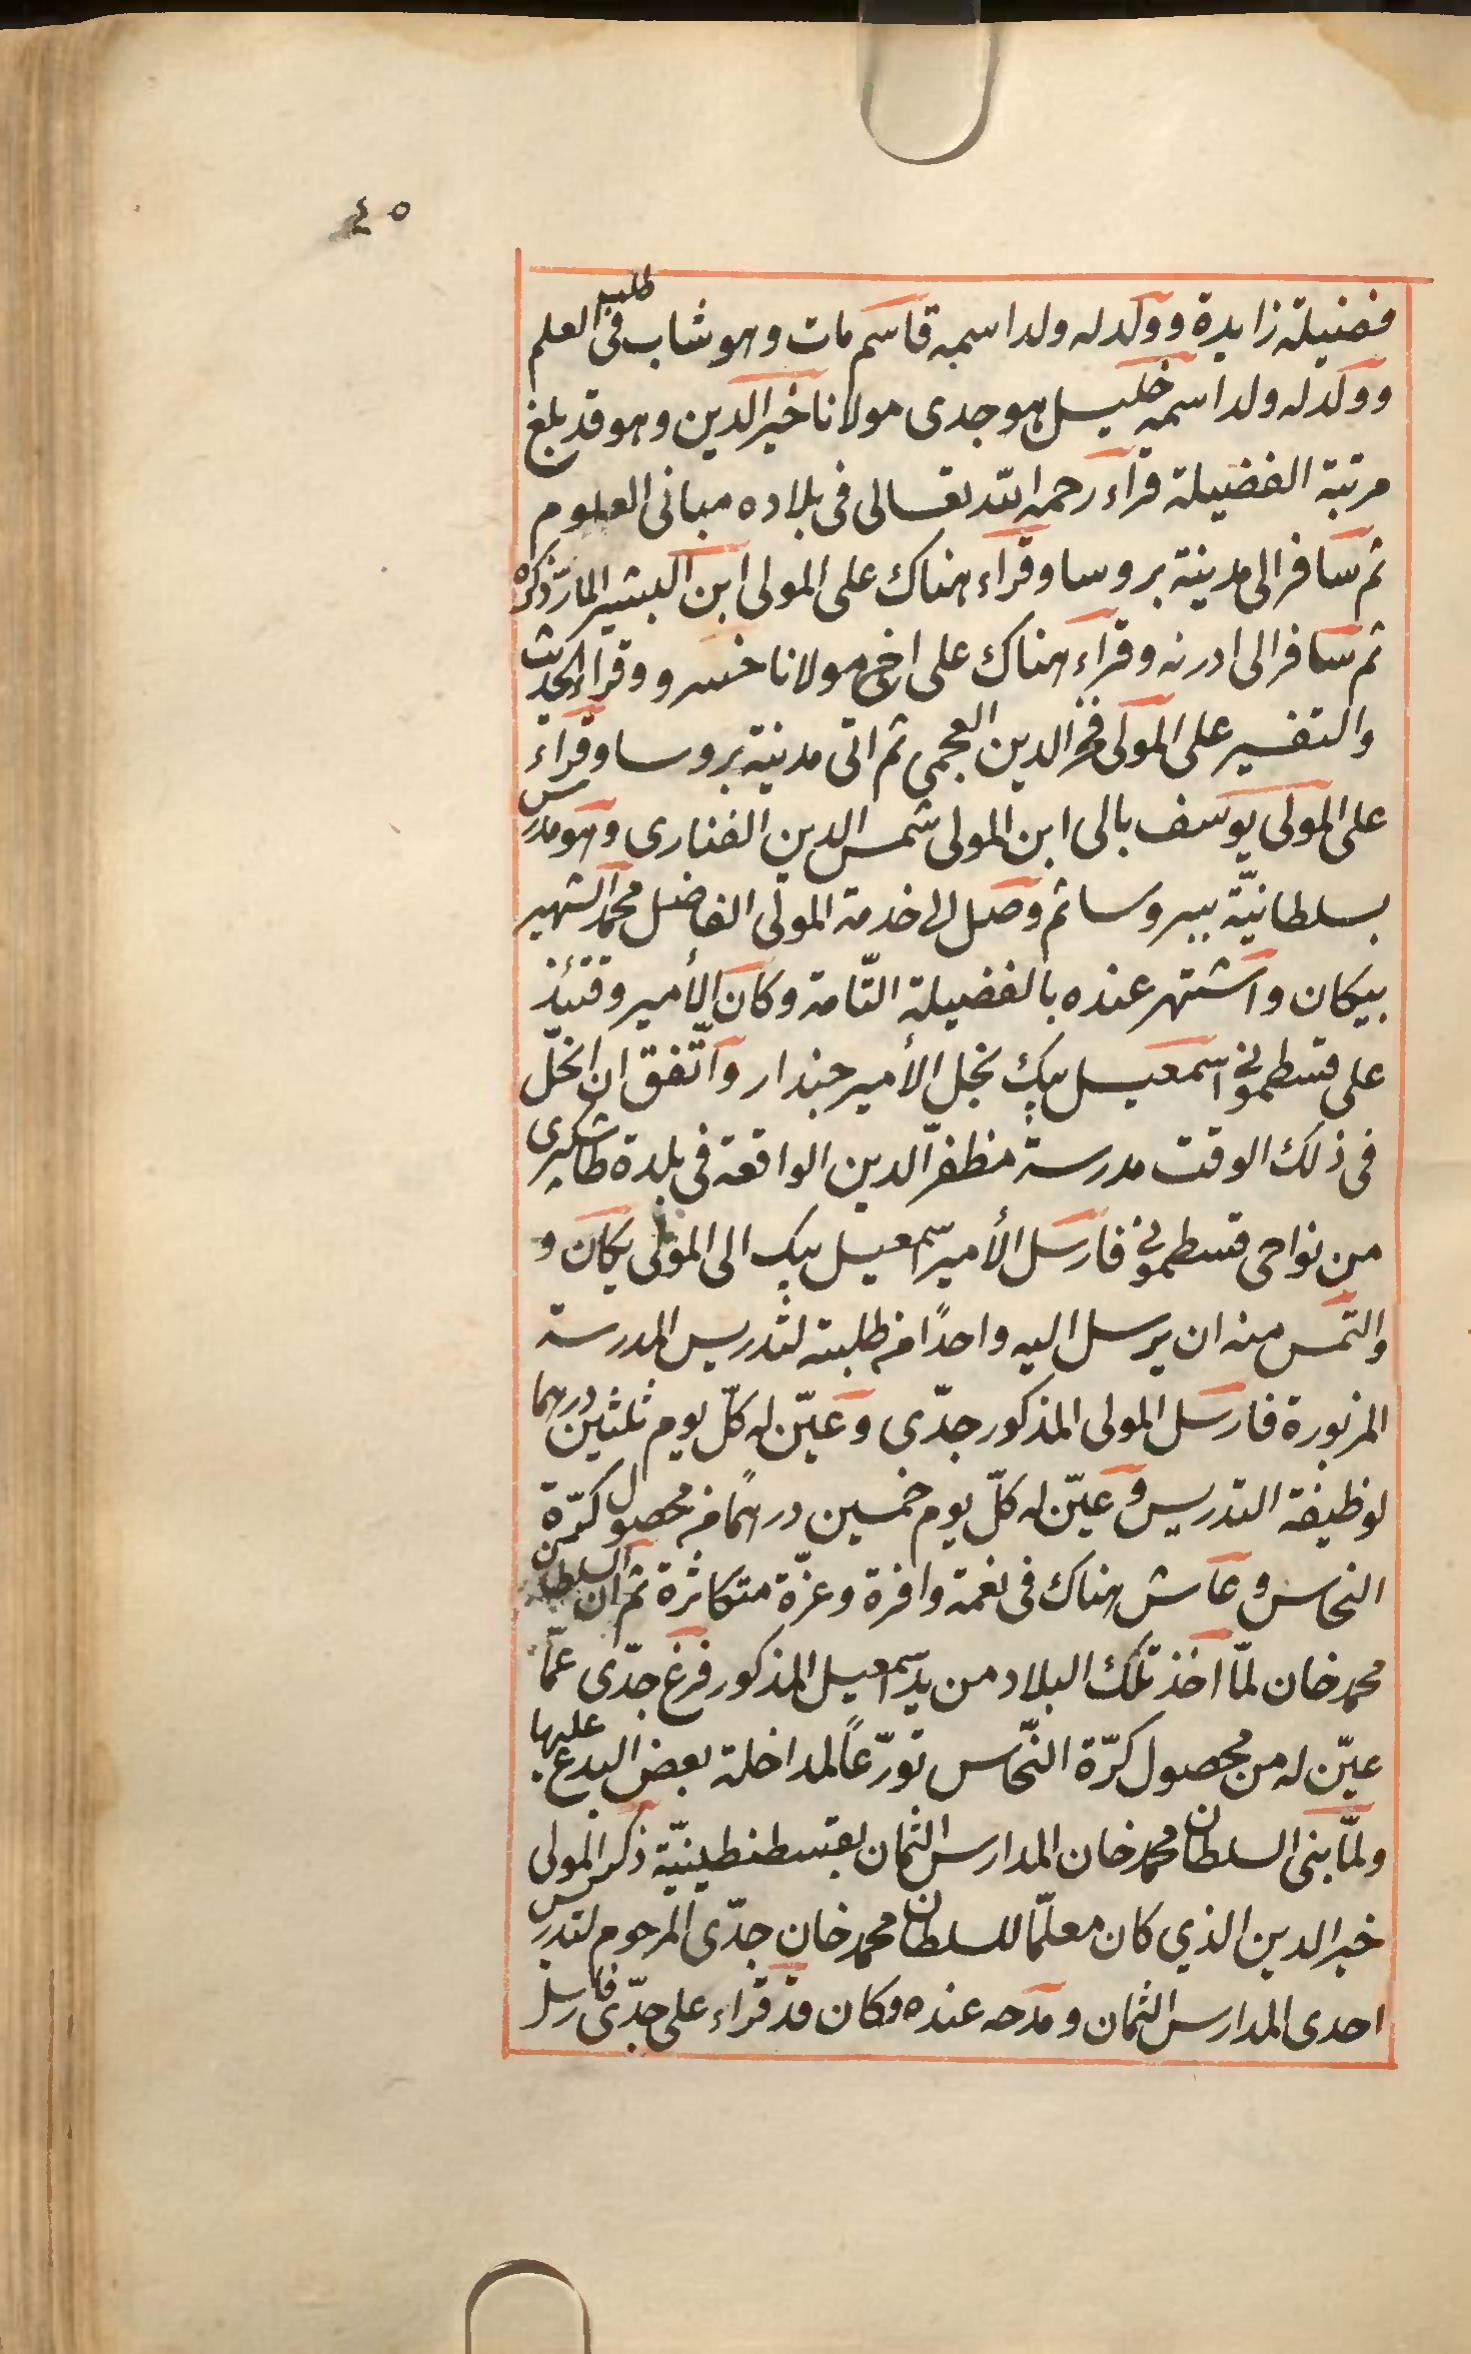 ٤٥
فضيلة زايدة وولد له ولد اسمه قاسم مات وهو شاب فى طلب العلم
وولد له ولد اسمه خليل هو جدى مولانا خير الدين وهو قد بلغ
مرتبة الفضيلة قراء رحمه الله تعالى فى بلاده مبانى العلوم
ثم سافر الى مدينة بروسا وقراء هناك على المولى ابن البشير المارّ ذكره
ثم سافر الى ادرنه وقراء هناك على اخى مولانا خسرو وقراء الحديث
والتفسير على المولى فخر الدين العجمى ثم اتى مدينة بروسا وقراء
على المولى يوسف بالى ابن المولى شمس الدين الفنارى وهو مدرس
بسلطانيّة ببروسا ثم وصل الى خدمة المولى الفاضل محمد الشهير
بيكان واشتهر عنده بالفضيلة التّامة وكان الأمير وقتئذ
على قسطمونى اسمعيل بيك نجل الأمير جندار واتّفق ان انحلّ
فى ذلك الوقت مدرسة مظفرّ الدين الواقعة فى بلدة طاشكبرى
من نواحى قسطمونى فارسل الأمير اسمعيل بيك الى المولى يكان و
والتمس منه ان يرسل اليه واحدًا من طلبته لتدريس المدرسة
المزبورة فارسل المولى المذكور جدّى وعيّن له كلّ يوم ثلثين درهما
لوظيفة التدريس وعيّن له كلّ يوم خمسين درهمًا من محصول كرّة
النحاس وعاش هناك فى نعمة وافرة وعزّة متكاثرة ثم ان السلطان
محمد خان لمّا اخذ تلك البلاد من يد اسمعيل المذكور فرغ جدّى عمّا
عيّن له من محصول كرّة النّحاس تورّعًا لمداخلة بعض البدع عليها
ولمّا بنى السلطان محمد خان المدارس الثمان بقسطنطينيّة ذكر المولى
خير الدين الذي كان معلّما للسلطان محمد خان جدّى المرحوم لتدريس
احدى المدارس الثمان ومدحه عنده وكان قد قراء على جدّى فارسل